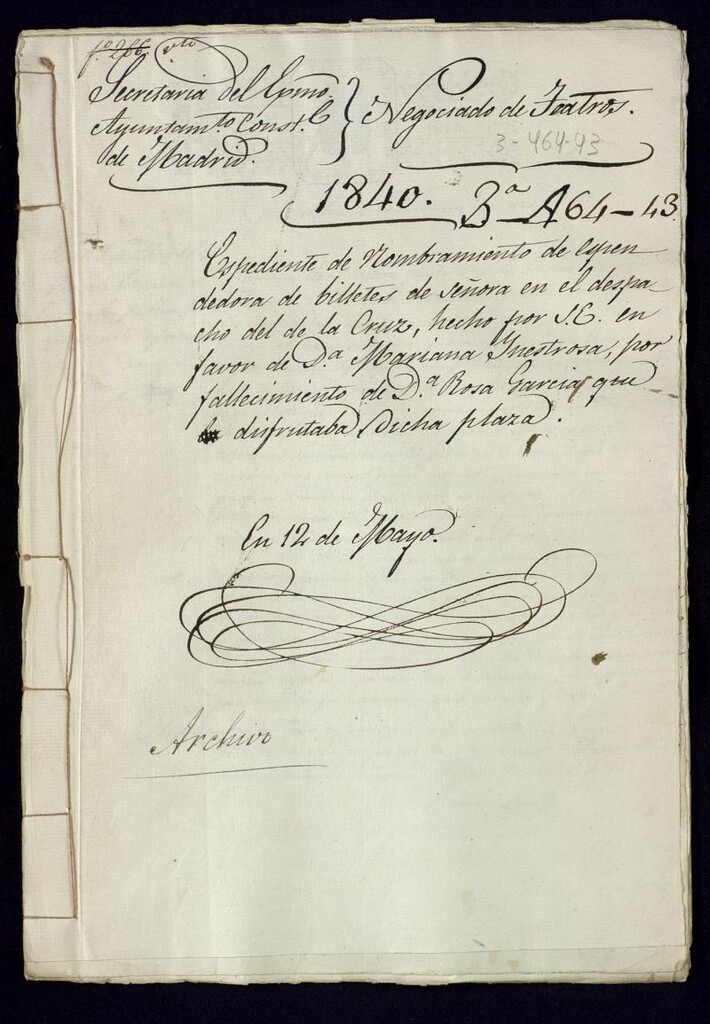 fº 266. vto
Secretaria del Exmo.
Ayuntamto. Constl.
de Madrid.
Negociado de Teatros.
3-464-43
1840. 3ª-464-43
Espediente de Nombramiento de espen-
dedora de billetes de señora en el despa-
cho del de la Cruz, hecho por S.E. en
favor de Dª Mariana Inestrosa, por
fallecimiento de Dª Rosa Garcia que
disfrutaba dicha plaza.
En 12 de Mayo.
Archivo